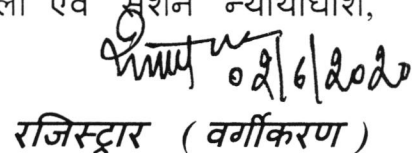 ला एवं सेशन न्यायाधीश,
02/6/2020
रजिस्ट्रार ( वर्गीकरण )